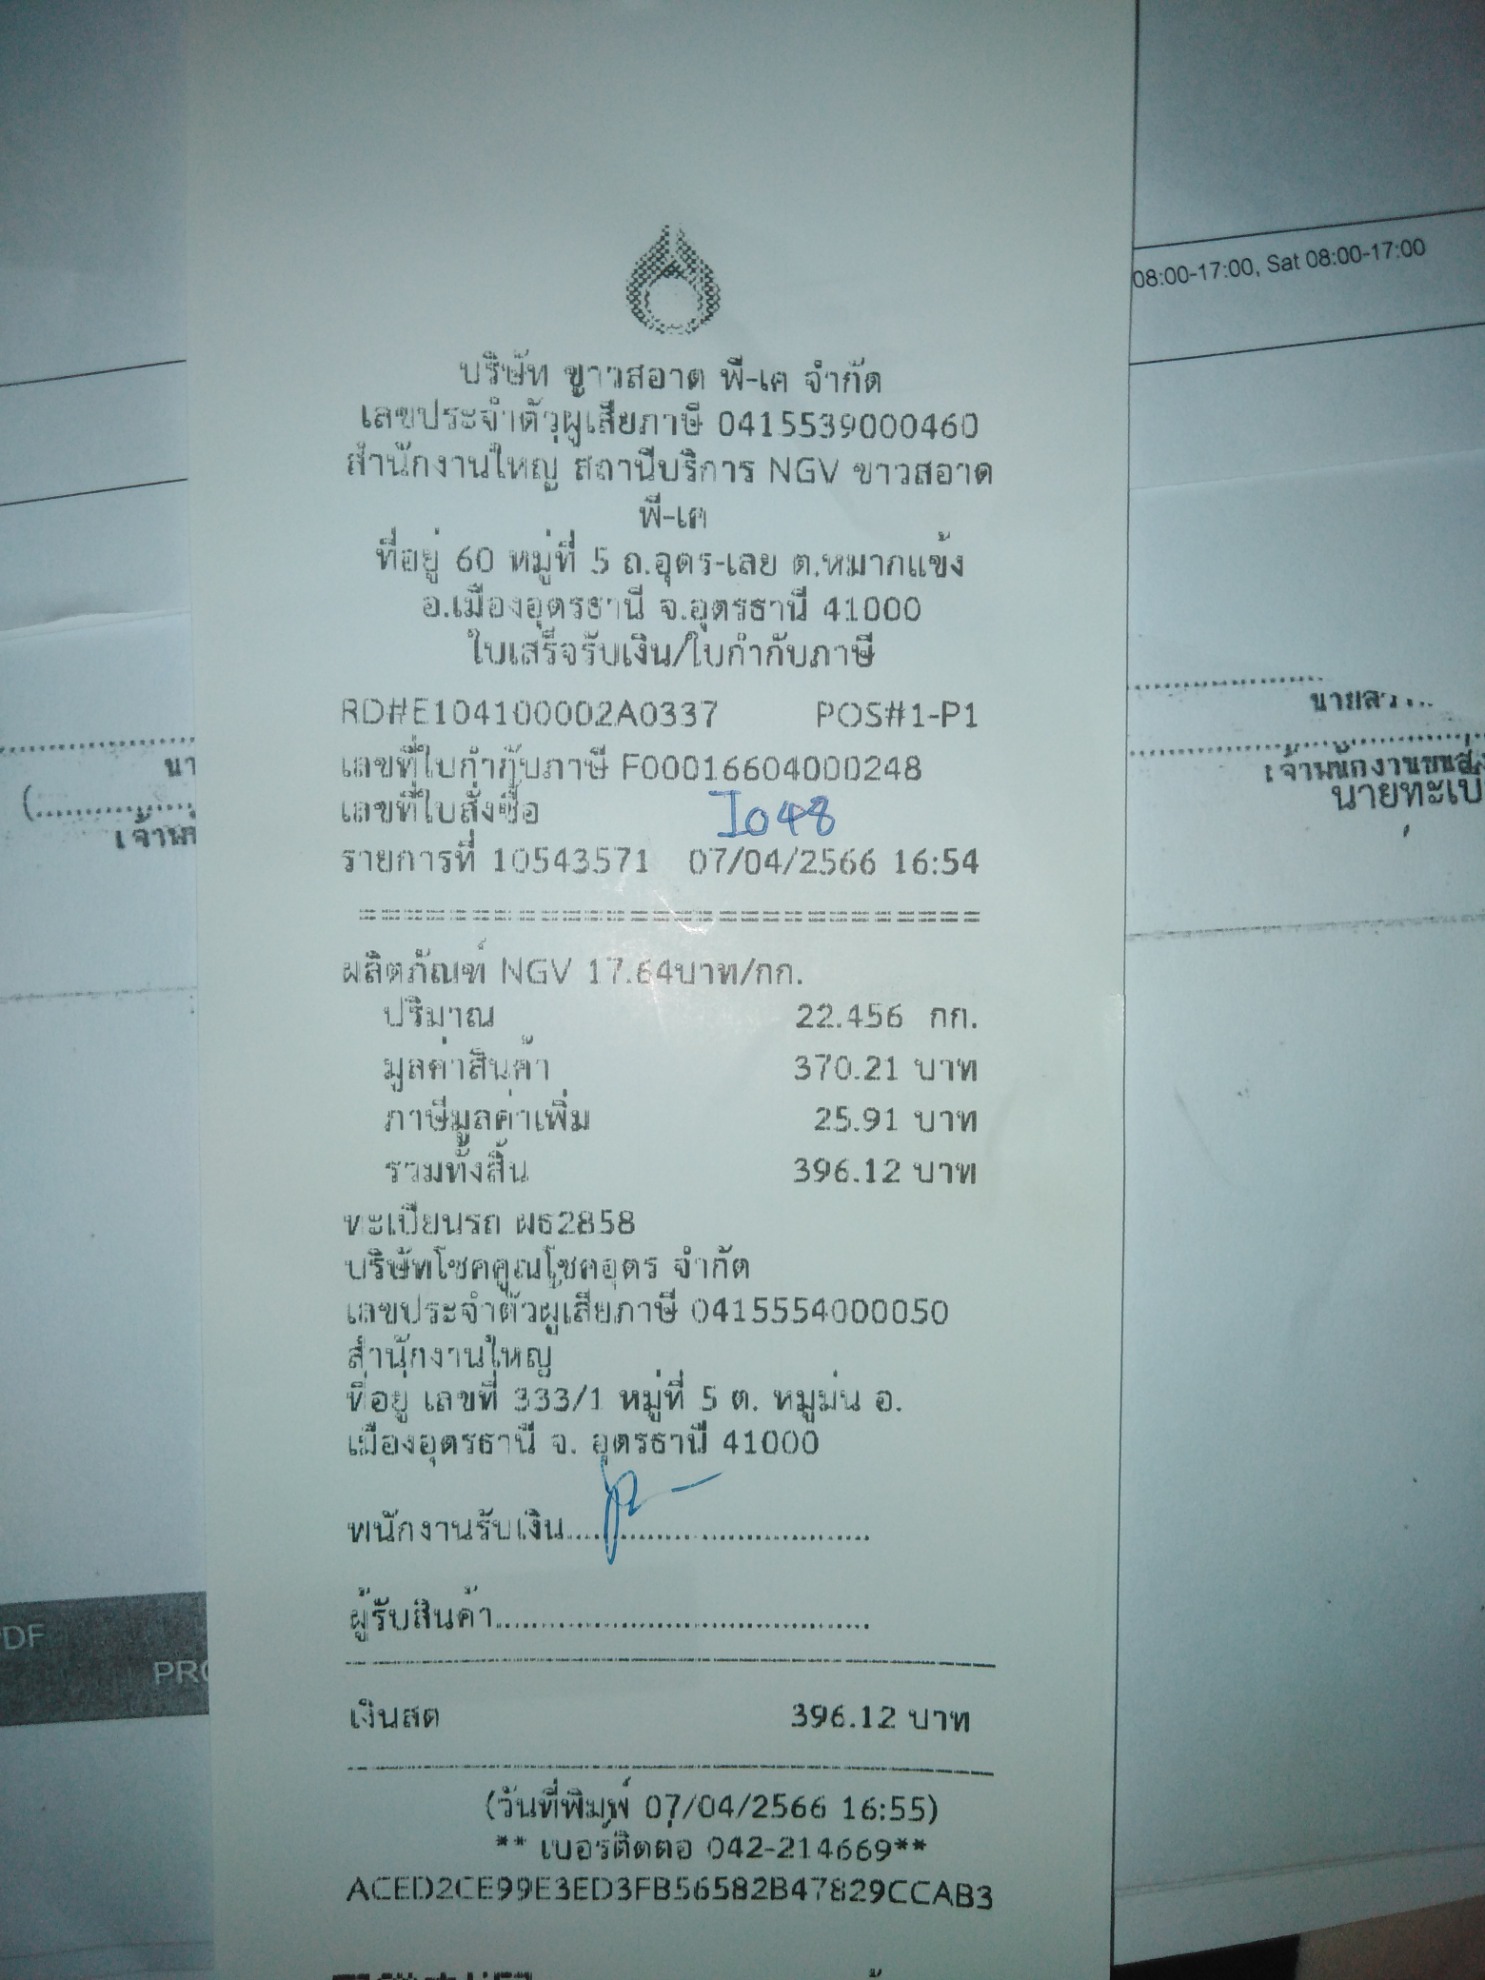 08:00-17:00, Sat 08:00-17:00
บริษัท ขาวสอาด พี-เค จำกัด
เลขประจำตัวผู้เสียภาษี 0415539000460
สำนักงานใหญ่ สถานีบริการ NGV ขาวสอาด
พี-เค
ที่อยู่ 60 หมู่ที่ 5 ถ.อุดร-เลย ต.หมากแข้ง
อ.เมืองอุดรธานี จ.อุดรธานี 41000
ใบเสร็จรับเงิน/ใบกำกับภาษี
RD#E104100002A0337 POS#1-P1
เลขที่ใบกำกับภาษี F00016604000248
เลขที่ใบสั่งซื้อ I048
รายการที่ 10543571 07/04/2566 16:54
ผลิตภัณฑ์ NGV 17.64บาท/กก.
ปริมาณ 22.456 กก.
มูลค่าสินค้า 370.21 บาท
ภาษีมูลค่าเพิ่ม 25.91 บาท
รวมทั้งสิ้น 396.12 บาท
ทะเบียนรถ ผธ2858
บริษัทโชคคูณโชคอุดร จำกัด
เลขประจำตัวผู้เสียภาษี 0415554000050
สำนักงานใหญ่
ที่อยู่ เลขที่ 333/1 หมู่ที่ 5 ต. หมูม่น อ.
เมืองอุดรธานี จ. อุดรธานี 41000
พนักงานรับเงิน........................................
ผู้รับสินค้า........................................
เงินสด 396.12 บาท
(วันที่พิมพ์ 07/04/2566 16:55)
** เบอร์ติดต่อ 042-214669**
ACED2CE99E3ED3FB56582B47829CCAB3